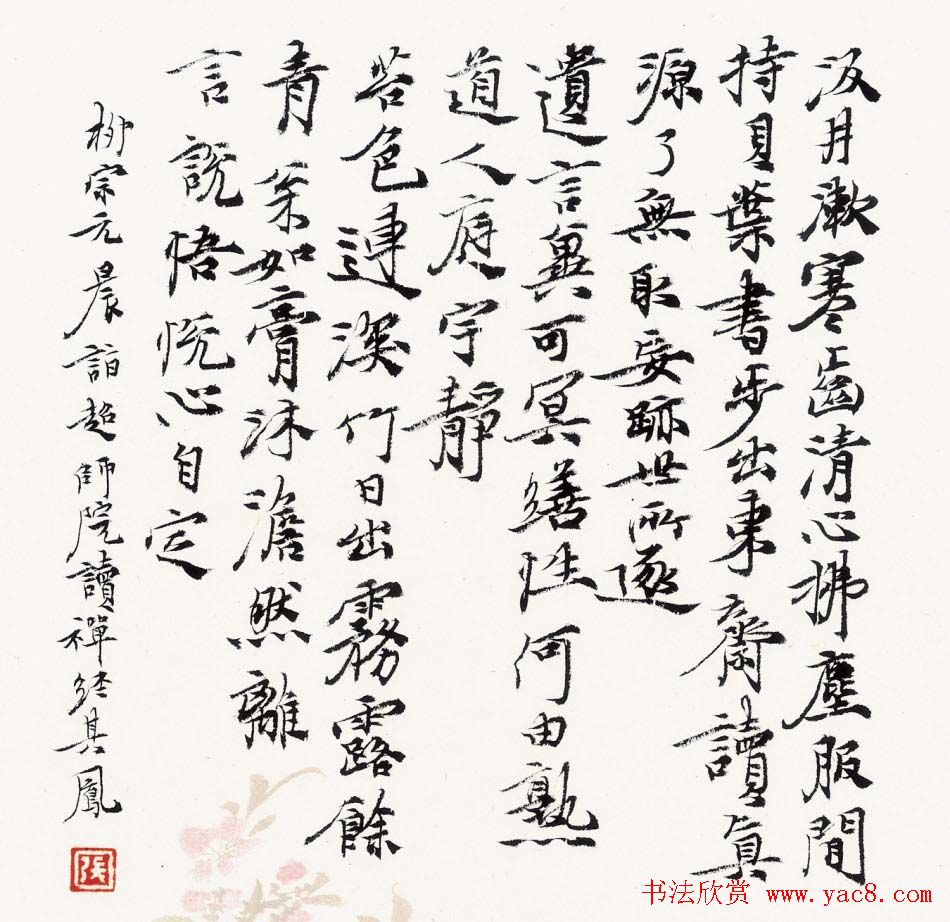 汲井漱寒齒清心拂塵服間
持貝葉書步出東齋讀真
源了無取妄跡世所逐
遺言冀可冥繕性何由熟
道人庭宇靜
苔色連深竹日出霧露餘
青枀如膏沐澹然離
言說悟悅心自定
柳宗元晨詣超師院讀禪經其鳳
張
书法欣赏 www.yac8.com